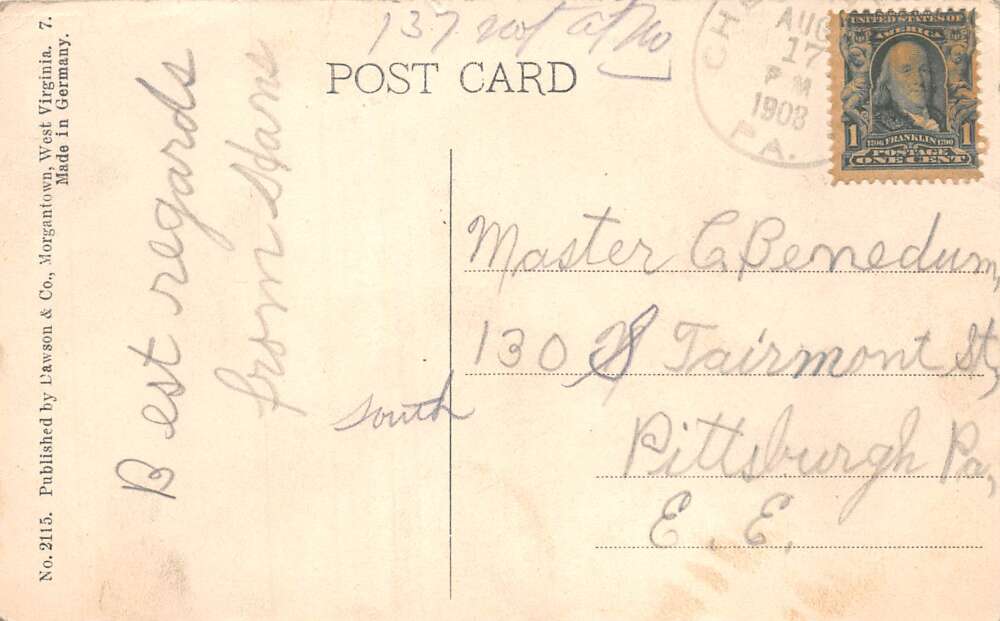 No. 2115. Published by Dawson & Co., Morgantown, West Virginia. 7.
Made in Germany.
Best regards
from Stans
137 not at No
POST CARD
AUG
17
P M
1908
PA.
UNITED STATES OF
AMERICA
1 1
1706 FRANKLIN 1790
POSTAGE
ONE CENT
Master C. Benedum,
130 S Fairmont St,
South
Pittsburgh Pa,
E. E.